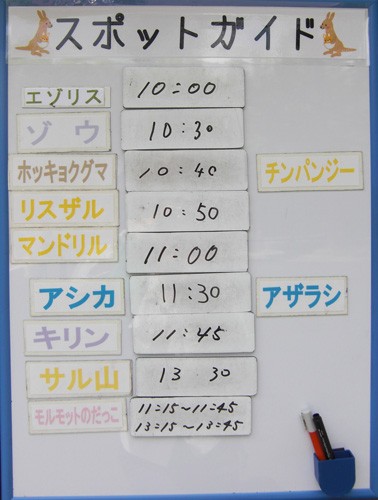 スポットガイド
エゾリス 10:00
ゾウ 10:30
ホッキョクグマ 10:40 チンパンジー
リスザル 10:50
マンドリル 11:00
アシカ 11:30 アザラシ
キリン 11:45
サル山 13 30
モルモットのだっこ 11:15~11:45
13:15~13:45